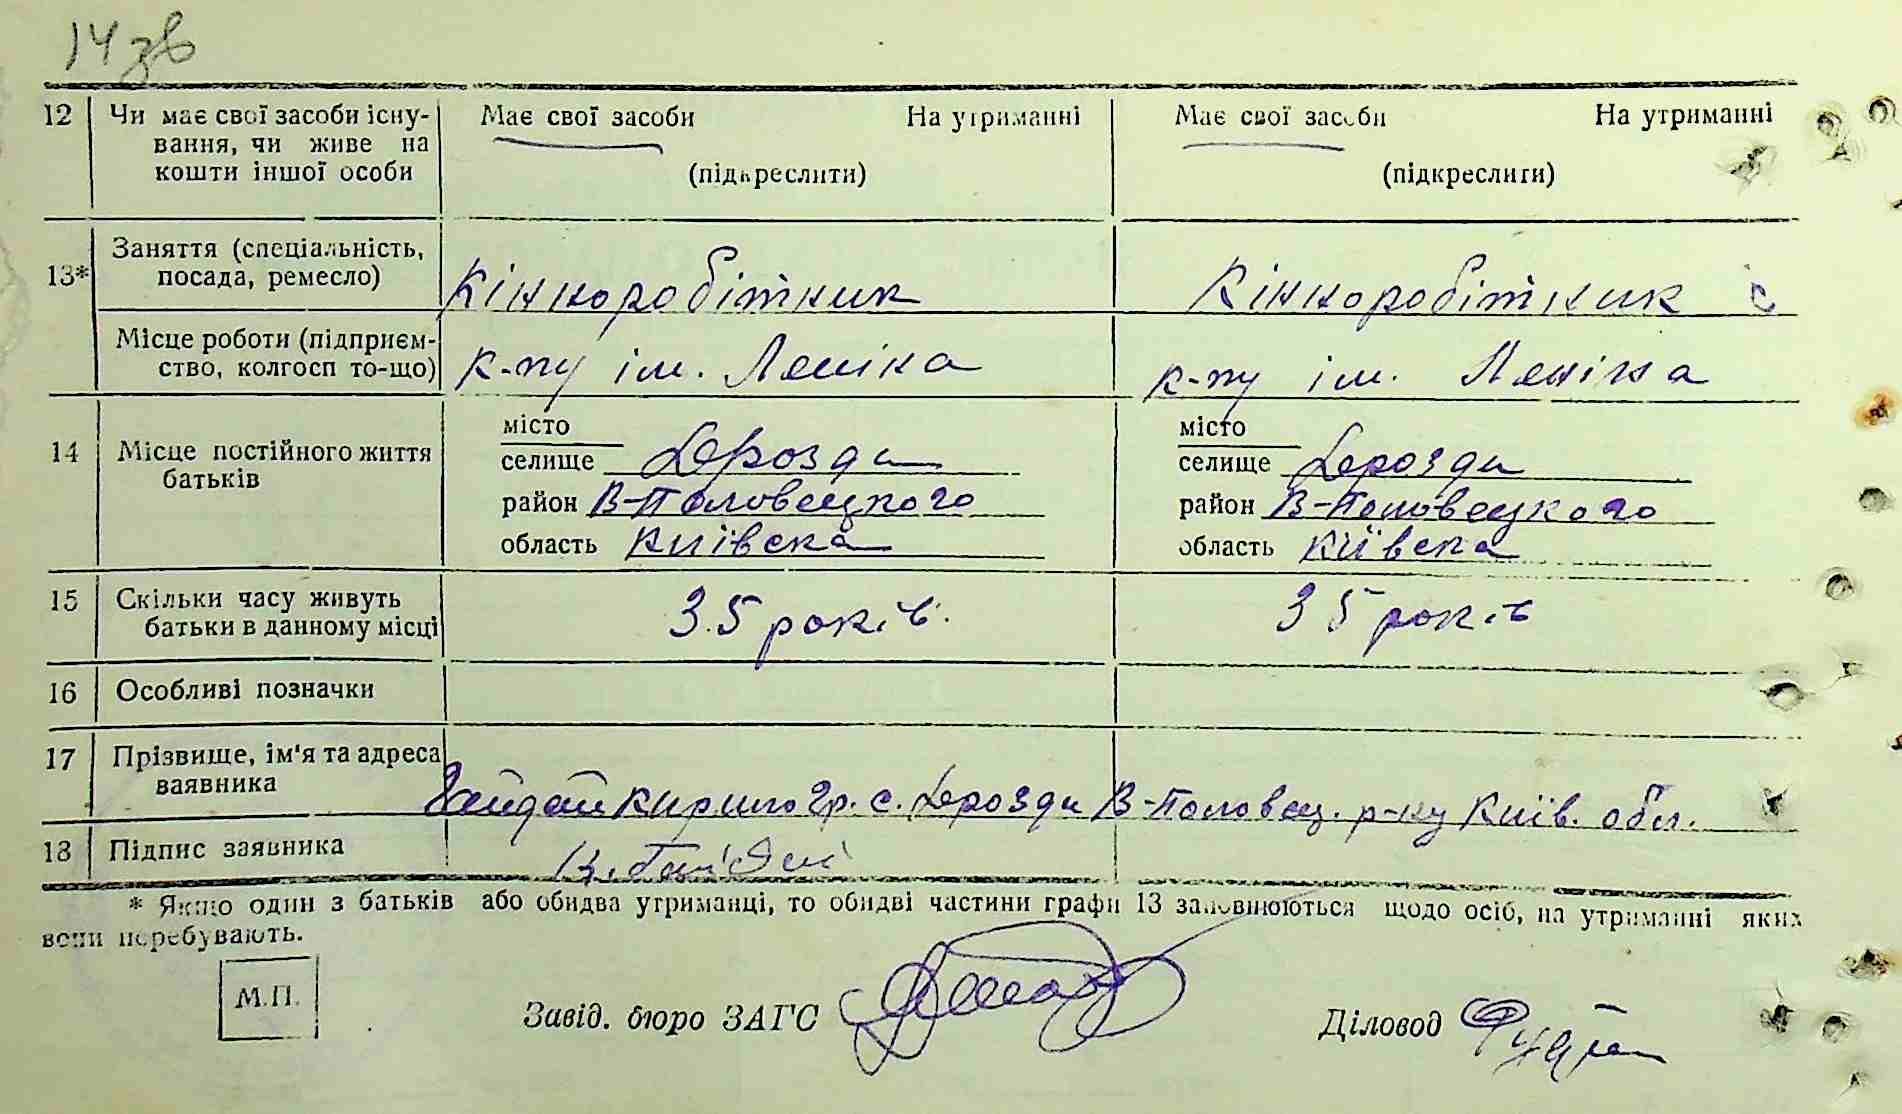 14 зв
12 Чи має свої засоби існу- Має свої засоби На утриманні Має свої засоби На утриманні
вання, чи живе на
кошти іншої особи (підкреслити) (підкреслити)
Заняття (спеціальність,
13* посада, ремесло) Кінноробітник Кінноробітник с
Місце роботи (підприєм-
ство, колгосп то-що) к-пу ім. Леніна к-пу ім. Леніна
місто місто
14 Місце постійного життя селище Дрозди селище Дрозди
батьків район В-Половецкого район В-Половецкого
область Київска область Київска
15 Скільки часу живуть 35 років. 35 років
батьки в данному місці
16 Особливі позначки
17 Прізвище, ім'я та адреса
заявника Гайдай Кирило Гр. с. Дрозди В-Половец. р-ну Київ. обл.
18 Підпис заявника К. Гайдай
* Якщо один з батьків або обидва утриманці, то обидві частини графи 13 заповнюються щодо осіб, на утриманні яких
вони перебувають.
М.П.
Завід. бюро ЗАГС Діловод